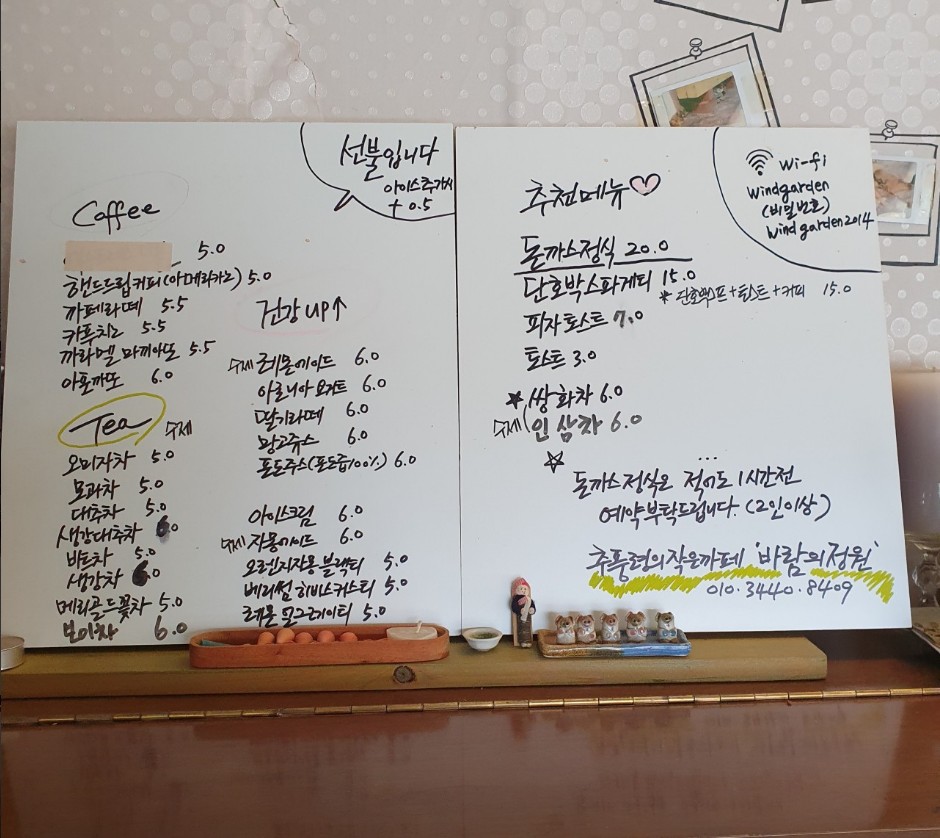 선불입니다
아이스추가시
+ 0.5
Coffee
5.0
핸드드립커피(아메리카노) 5.0
까페라떼 5.5
카푸치노 5.5
까라멜 마끼아또 5.5
아포까또 6.0
Tea 수제
오미자차 5.0
모과차 5.0
대추차 5.0
생강대추차 6.0
비트차 5.0
생강차 6.0
메리골드꽃차 5.0
보이차 6.0
건강 UP↑
수제 레몬에이드 6.0
아로니아 요거트 6.0
딸기라떼 6.0
망고쥬스 6.0
포도주스(포도즙100%) 6.0
아이스크림 6.0
수제 자몽에이드 6.0
오렌지자몽 블랙티 5.0
베리썸 히비스커스티 5.0
레몬 얼그레이티 5.0
추천메뉴♡
돈까스정식 20.0
단호박스파게티 15.0
* 단호박스프+토스트+커피 15.0
피자토스트 7.0
토스트 3.0
★ 쌍화차 6.0
수제 인삼차 6.0
☆ ...
돈까스정식은 적어도 1시간전
예약부탁드립니다. (2인이상)
추풍령의작은까페 '바람의정원'
010.3440.8409
Wi-fi
windgarden
(비밀번호)
windgarden2014